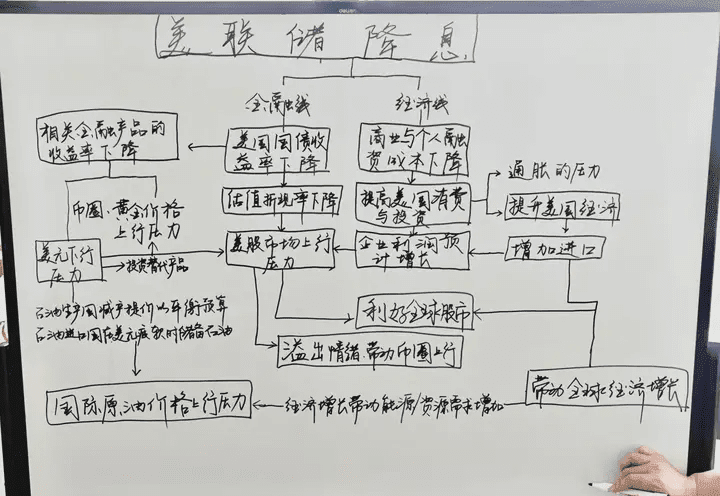 deli
美联储降息
金融线
经济线
相关金融产品的
收益率下降
美国国债收
益率下降
商业与个人融
资成本下降
通胀的压力
币圈、黄金价格
上行压力
估值折现率下降
提高美国消费
与投资
提升美国经济
美元下行
压力
投资替代产品
美股市场上行
压力
企业利润预
计增长
增加进口
石油生产国减产提价以平衡预算
石油进口国在美元疲软时储备石油
利好全球股市
溢出情绪、带动币圈上行
国际原油价格上行压力
经济增长带动能源/资源需求增加
带动全球经济增长